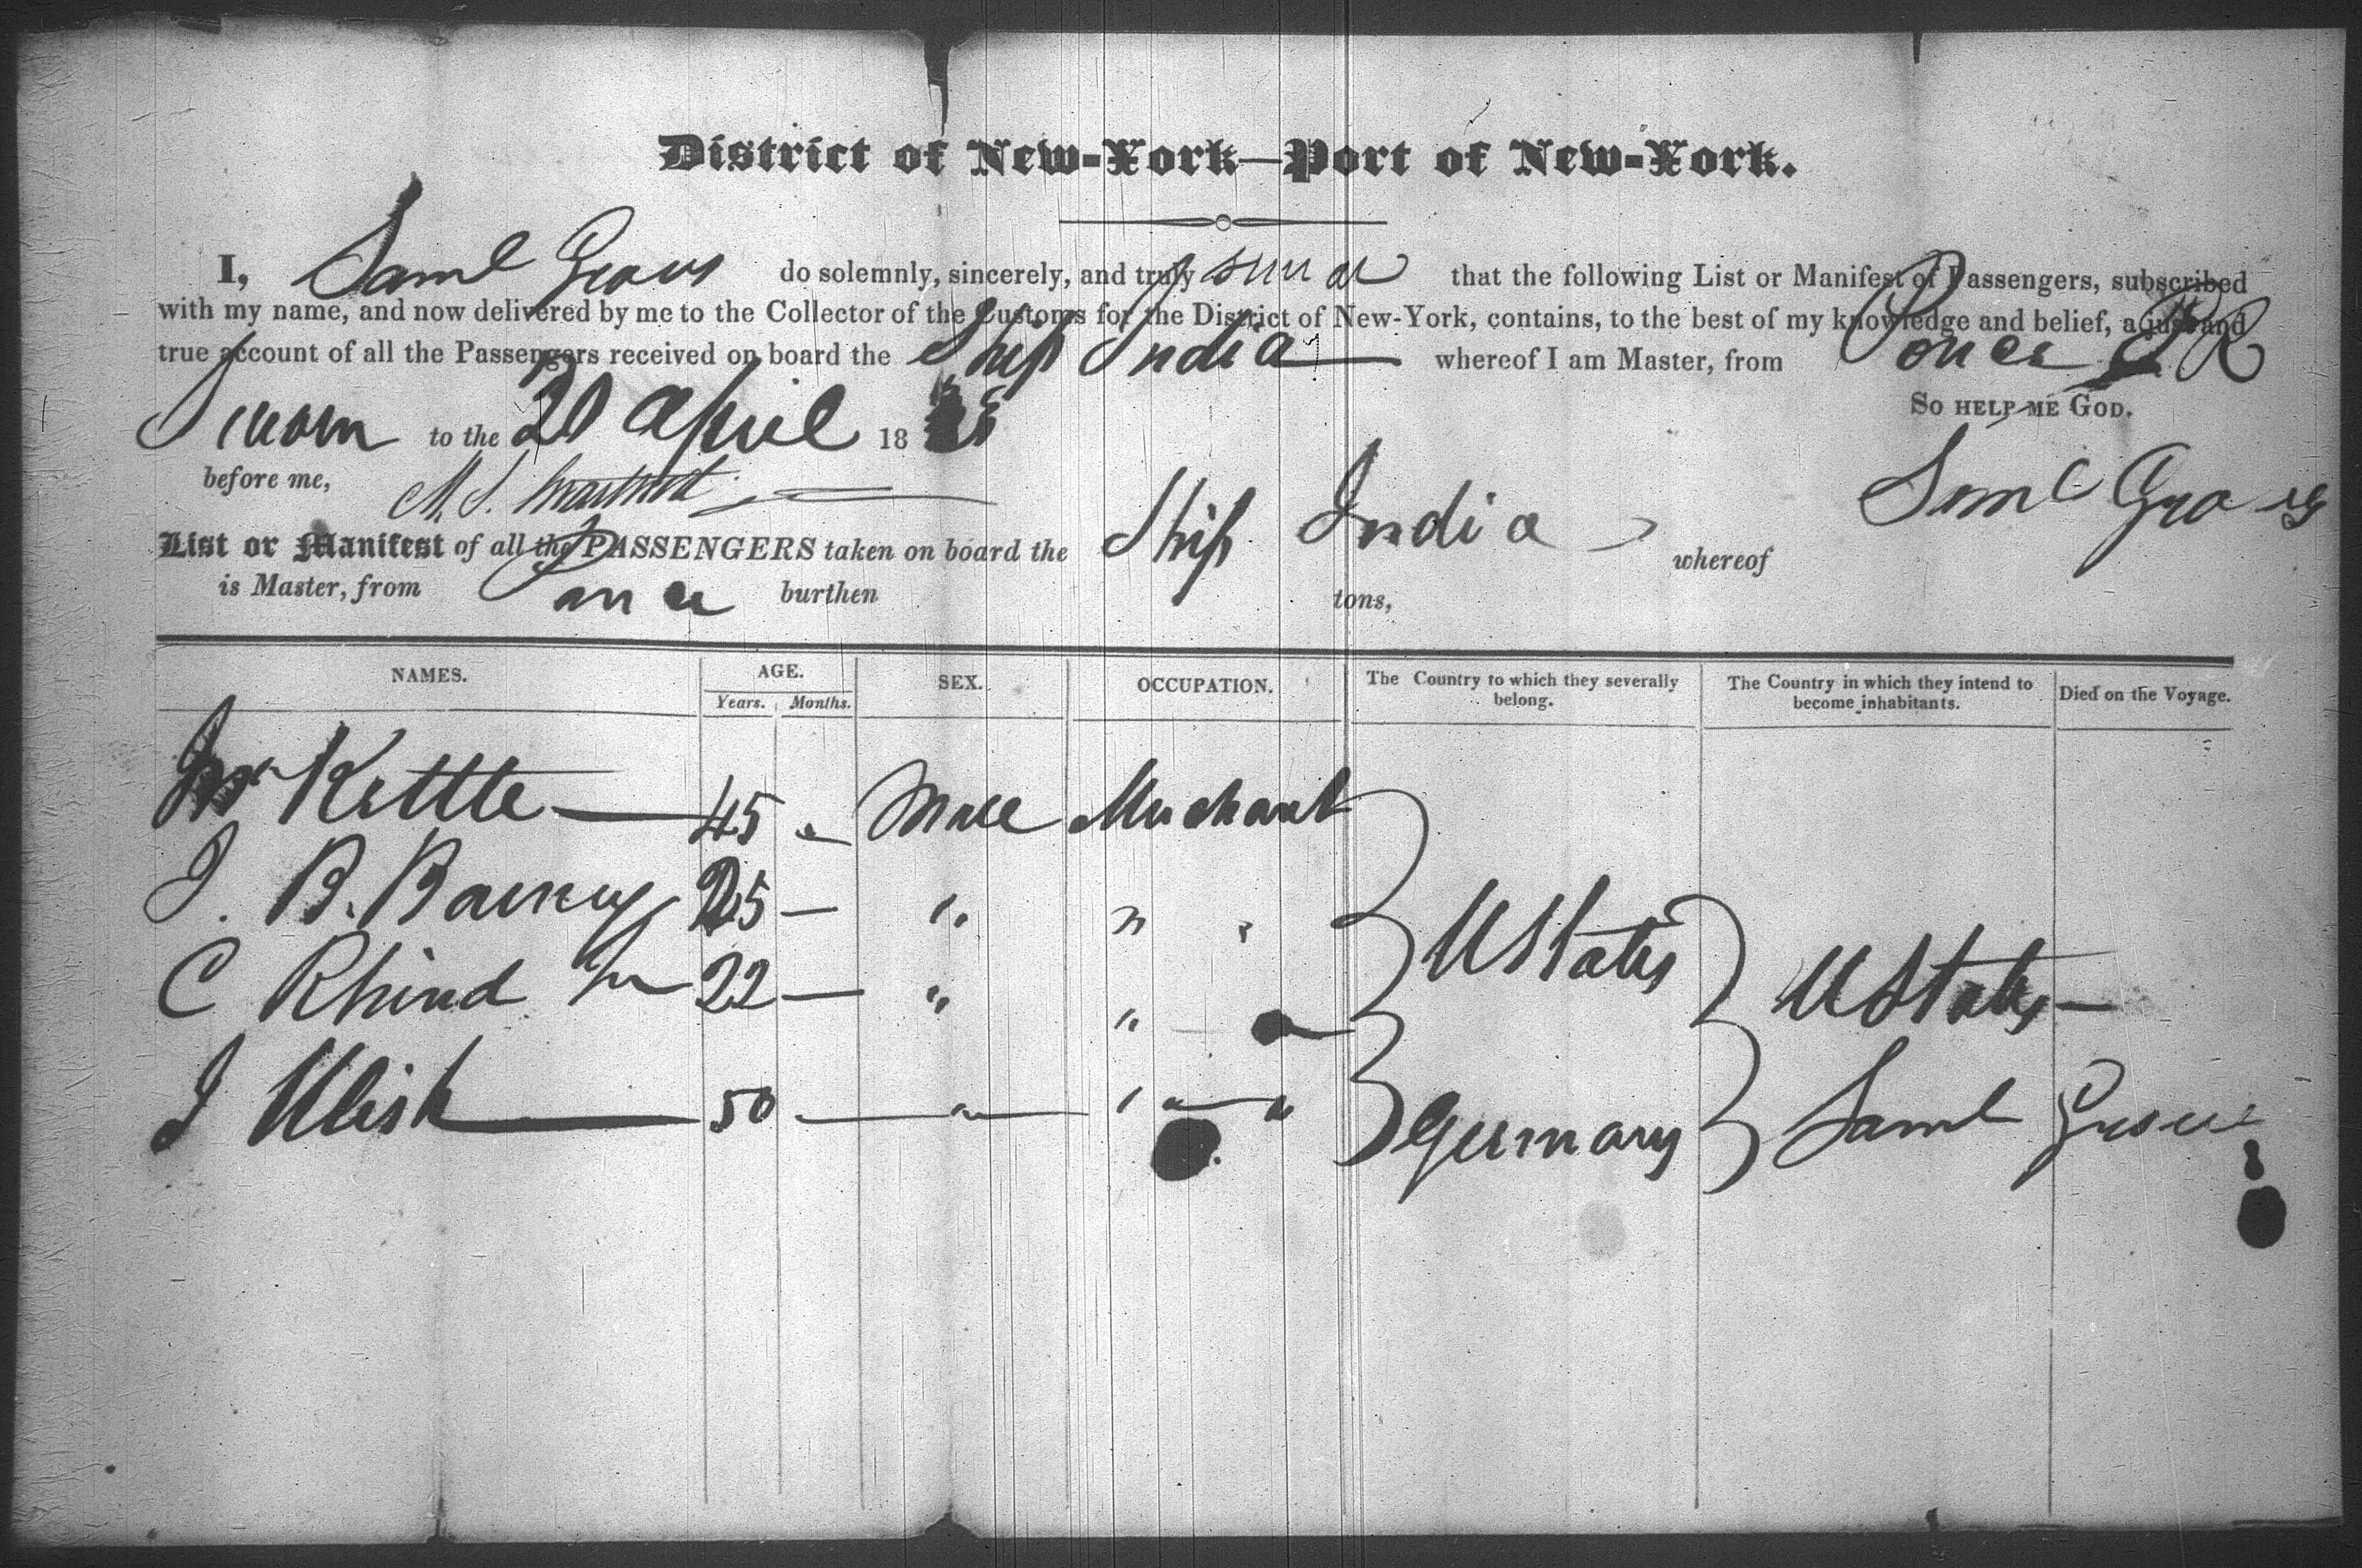 District of New-York—Port of New-York.
I, Saml do solemnly, sincerely, and truly swear that the following List or Manifest of Passengers, subscribed
with my name, and now delivered by me to the Collector of the Customs for the District of New-York, contains, to the best of my knowledge and belief, a just and
true account of all the Passengers received on board the Ship India whereof I am Master, from Ponce P R
So help me God.
Sworn to the 20 April 18
before me,
Saml
List or Manifest of all the PASSENGERS taken on board the Ship India whereof
is Master, from Ponce burthen tons,
NAMES. AGE. SEX. OCCUPATION. The Country to which they severally belong. The Country in which they intend to become inhabitants. Died on the Voyage.
Years. Months.
Kettle 45 Male Merchant
J. B. 25 — " "
C Rhind Jr 22 — " " U States U States
J 50 " " " Germany Saml